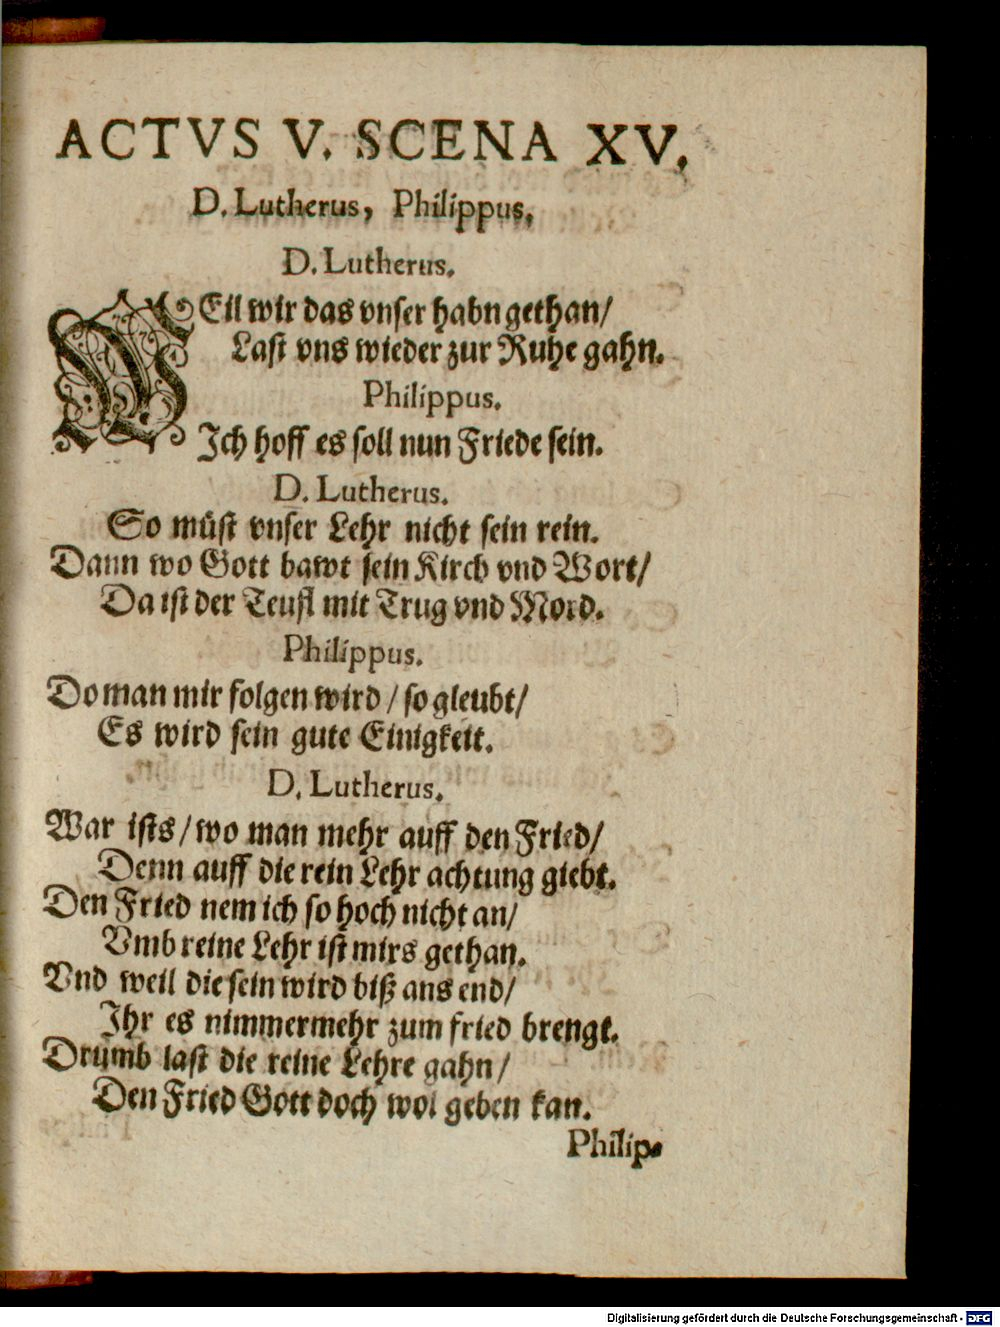 ACTVS V. SCENA XV.
D. Lutherus, Philippus.
D. Lutherus.
WEil wir das vnser habn gethan/
Last vns wieder zur Ruhe gahn.
Philippus.
Jch hoff es soll nun Friede sein.
D. Lutherus.
So müst vnser Lehr nicht sein rein.
Dann wo Gott bawt sein Kirch vnd Wort/
Da ist der Teufl mit Trug vnd Mord.
Philippus.
Do man mir folgen wird / so gleubt/
Es wird sein gute Einigkeit.
D. Lutherus.
War ists / wo man mehr auff den Fried/
Denn auff die rein Lehr achtung giebt.
Den Fried nem ich so hoch nicht an/
Vmb reine Lehr ist mirs gethan.
Vnd weil die sein wird biß ans end/
Jhr es nimmermehr zum fried brengt.
Drumb last die reine Lehre gahn/
Den Fried Gott doch wol geben kan.
Philip-
Digitalisierung gefördert durch die Deutsche Forschungsgemeinschaft - DFG